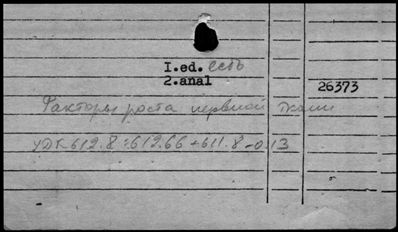 I.ed. есть
2.anal
26373
Факторы роста нервной ткани
УДК 612.8:612.66+611.8-013